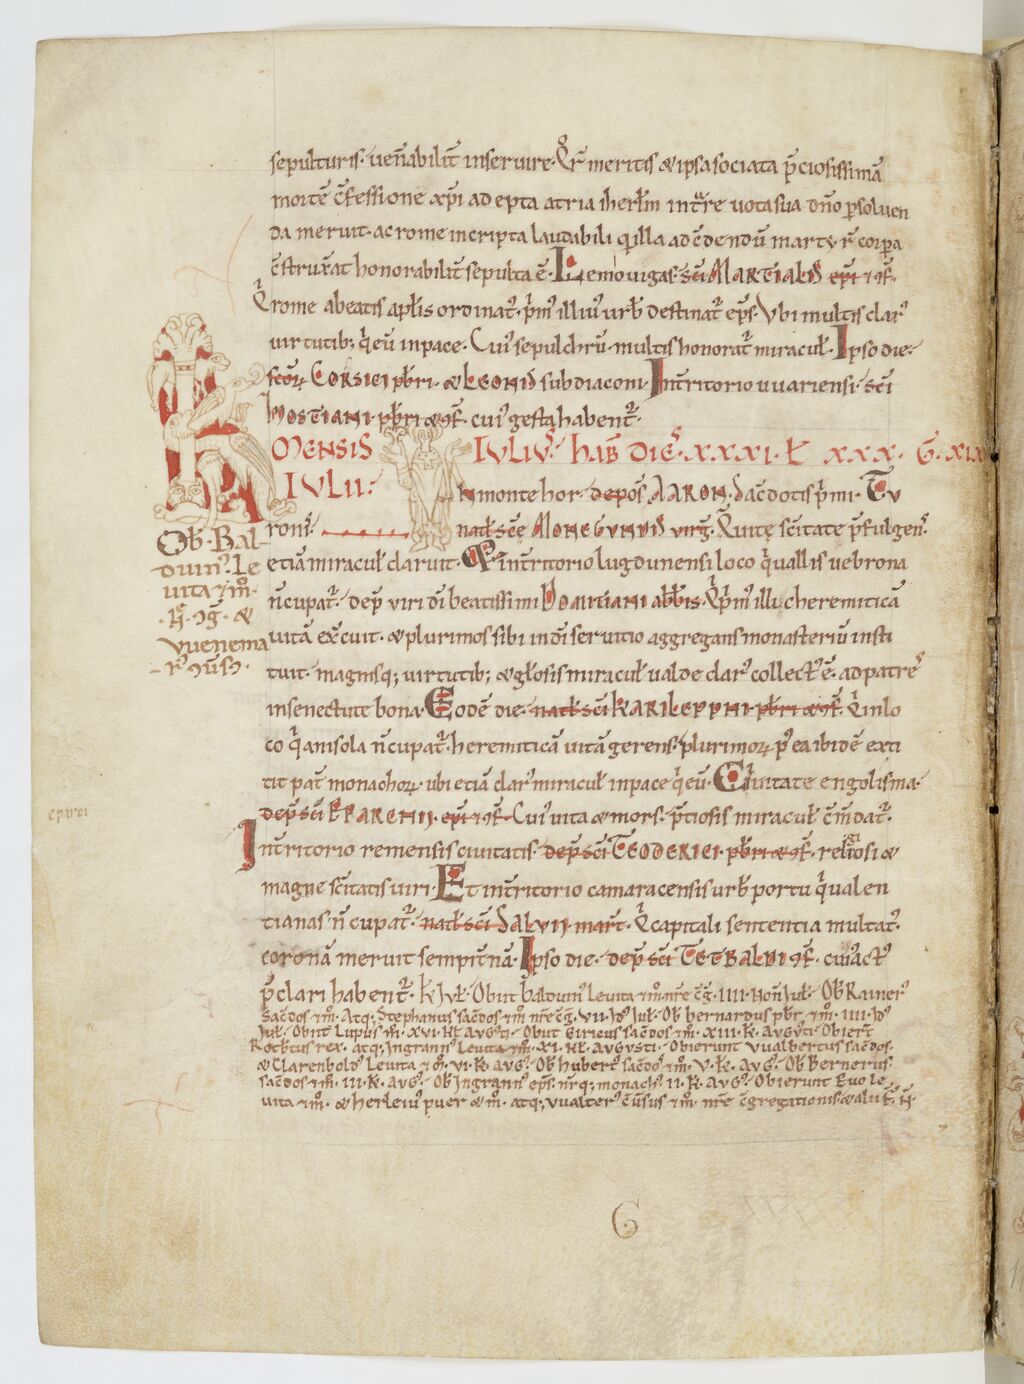 sepulturis. uen̄abilit̄ inseruire. Q̄r meritis & ipsa sociata p̄ciosissimā
mortē c̄fessione xp̄i adepta atria iherl̄m intr̄re uota sua dn̄o ꝑsoluen
da meruit. ac rome in cripta laudabili q̄ illa ad c̄dendū martyr̄ corꝑa
c̄struxͣat honorabilit̄ sepulta ē. Lemouigas. sc̄i MARTIALIS ep̄i &9f̄.
Q̄ rome a beatis apl̄is ordinatꝰ. p̄mꝰ illiuꝰ urb̄ destinat̄ ep̄s. Vbi multis clarꝰ
uirtutib; q̄eū in pace. Cuiꝰ sepulchrū. multis honorat̄ miracul̄. Ipso die.
sc̄oꝝ CORSICI pb̄ri. & LEONIS subdiaconi. In t̄ritorio uuariensi. sc̄i
HOSTIANI. pb̄ri &9f̄. cuiꝰ gesta habent̄.
MENSIS IVLIVꝰ. hab̄ DIEꝰ. XXXI. L̄ XXX. G. XIX
IVLII. In monte hor. depoꝰ AARON. sac̄dotis p̄mi. Tu
roniꝰ. nat̄l sc̄e MONEGVNDIS uirḡ. Quite sc̄itate p̄fulgenꝰ.
etiā miracul̄ claruit. & in t̄ritorio lugdunensi loco q̄ uallis uebrona
n̄cupat̄. dep̄ uiri dī beatissimi DOMITIANI abb̄is. Q̄ p̄mꝰ illic heremiticā
uitā ex̄cuit. & plurimos sibi in dī seruitio aggregans monasteriū insti
tuit. magnisq; uirtutib; & gl̄osis miracul̄ ualde clarꝰ collectꝰ ē. ad patreꝰ
in senectute bona. Eodē die. nat̄l sc̄i KARILEPPHI. pb̄ri &9f̄. Q̄ in lo
co q̄ anisola n̄cupat̄. heremiticā uitā gerens. plurimoꝝ p̄ ea ibidē exti
tit pat̄ monachoꝝ. ubi etiā clarꝰ miracul̄ in pace q̄eū. Ciuitate engolisma.
dep̄ sc̄i EPARCHII. ep̄i &9f̄. Cuiꝰ uita & mors. p̄tiosis miracul̄ c̄mdat̄.
In t̄ritorio remensis ciuitatis. dep̄ sc̄i TEODERICI. pb̄ri &9f̄. religiosi &
magne sc̄itatis uiri. Et in t̄ritorio camaracensis urb̄ portu q̄ ualen
tianas n̄cupat̄. nat̄l sc̄i SALVII mart̄. Q̄ capitali sententia multatꝰ.
coronā meruit sempit̄nā. Ipso die. dep̄ sc̄i TETBALDI 9f̄. cuiꝰ actꝰ
p̄clari habent̄. Obiit balduinꝰ Leuita &m̄. nr̄e c̄g. IIII. Non̄ Iul̄. Ob̄ Rainerꝰ
Sac̄dos &m̄. Atq; Stephanus sac̄dos &m̄ nr̄e c̄g. VII. Id̄ Iul̄. Ob̄ bernardus pb̄r &m̄. IIII. Id̄
Iul̄. Obiit Lupus m̄. XVI. Kl̄ AVGꝰTI. Obiit Giricus sac̄dos &m̄. XIII. K. AVGVSTI. Obier̄t
Rotb̄tus rex. atq; Ingrannꝰ Leuita &m̄. XI. Kl̄. AVGVSTI. Obierunt Vualbertus sac̄dos.
& Clarenboldꝰ Leuita &m̄. VI. K. AVGꝰ. Ob̄ Hubertꝰ sac̄dos &m̄. V. K̄. AVGꝰ. Ob̄ Bernerius
sac̄dos &m̄. III. K. AVGꝰ. Ob̄ Ingrannꝰ ep̄s. nr̄q; monachꝰ. II. K. AVGꝰ. Obierunt Euo le
uita &m̄. & herleiuꝰ puer & m̄. atq; vualterꝰ c̄uersus &m̄ nr̄e c̄gregationis
Ob̄. Bal
duinꝰ. Le
uita &m̄.
. & 
vuenema
eparci
G